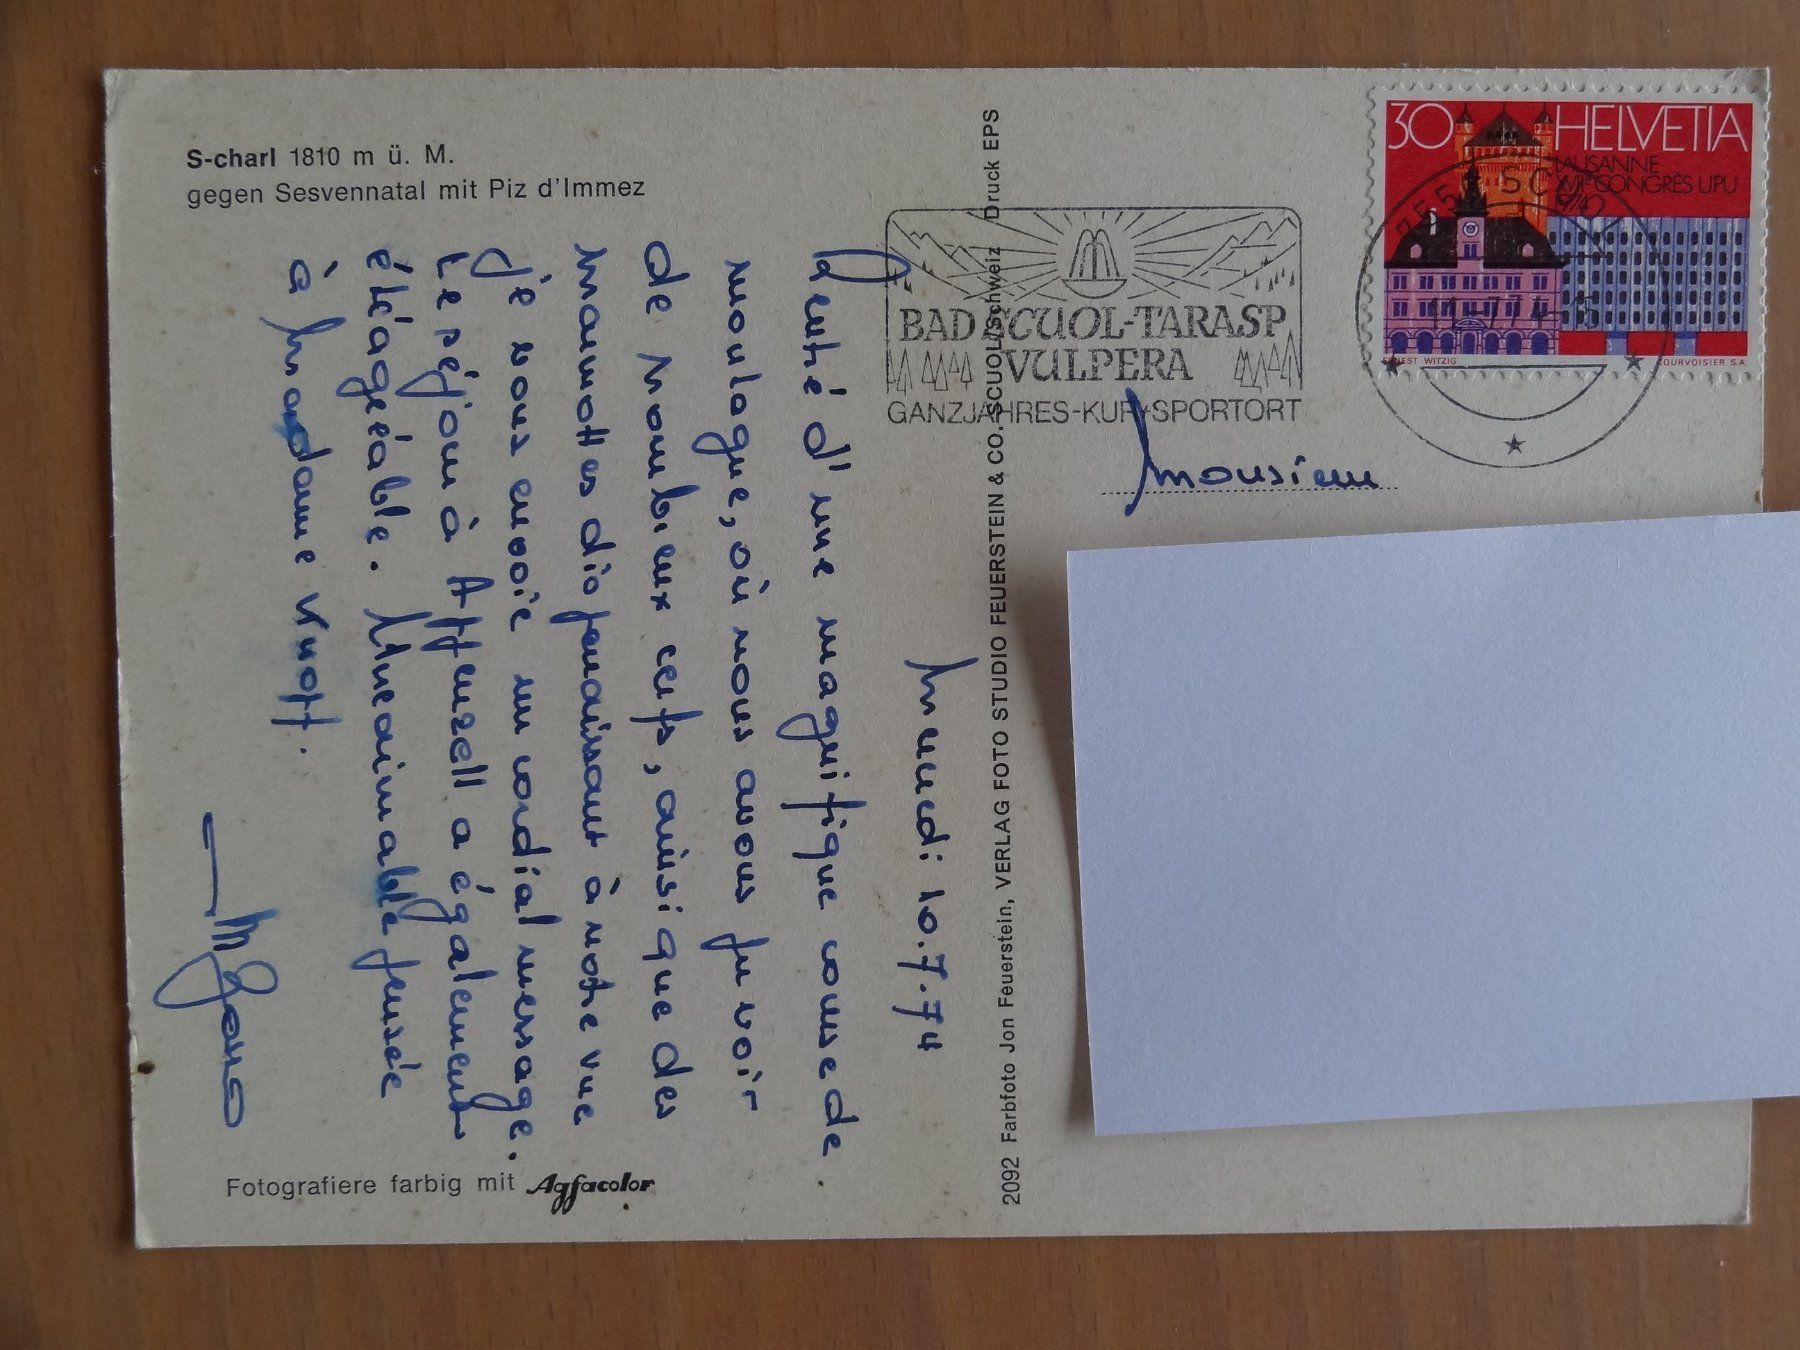 S-charl 1810 m ü. M.
gegen Sesvennatal mit Piz d'Immez
Mercredi 10.7.74
Rentré d'une magnifique course de
montagne, où nous avons pu voir
de nombreux cerfs, ainsi que des
marmottes disparaissant à notre vue
je vous envoie un cordial message.
Le séjour à Appenzell a également
été agréable. Une aimable pensée
à Madame Knopf.
Fotografiere farbig mit Agfacolor
2092 Farbfoto Jon Feuerstein, VERLAG FOTO STUDIO FEUERSTEIN & CO. SCUOL/Schweiz Druck EPS
BAD SCUOL-TARASP
VULPERA
GANZJAHRES-KUR+SPORTORT
30 HELVETIA
LAUSANNE
XVIIe CONGRÈS UPU
1974
ERNEST WITZIG
COURVOISIER S.A.
11-7.74-15
Monsieur